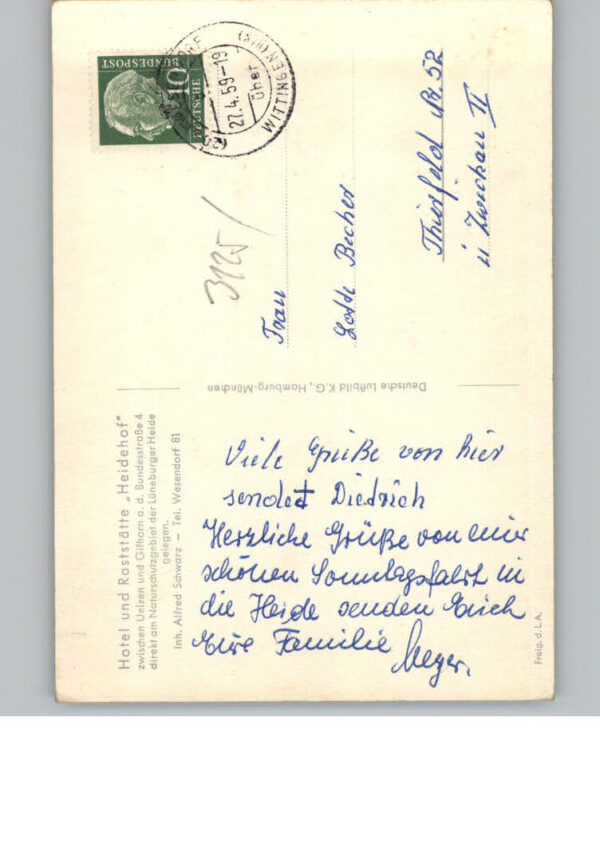 Hotel und Raststätte „Heidehof"
zwischen Uelzen und Gifhorn a. d. Bundesstraße 4
direkt am Naturschutzgebiet der Lüneburger Heide
gelegen.
Inh. Alfred Schwarz — Tel. Wesendorf 81
Viele Grüße von hier
sendet Diedrich
Herzliche Grüße von einer
schönen Sonntagsfahrt in
die Heide senden Euch
Eure Familie Meyer.
Deutsche Luftbild K.G., Hamburg-München
Freig. d. L.A.
DEUTSCHE
BUNDESPOST
10
27.4.59-18
über
WITTINGEN (HAN)
3125/
Frau
Lotte Becher
Thierfeld Nr. 52
ü Zwickau II